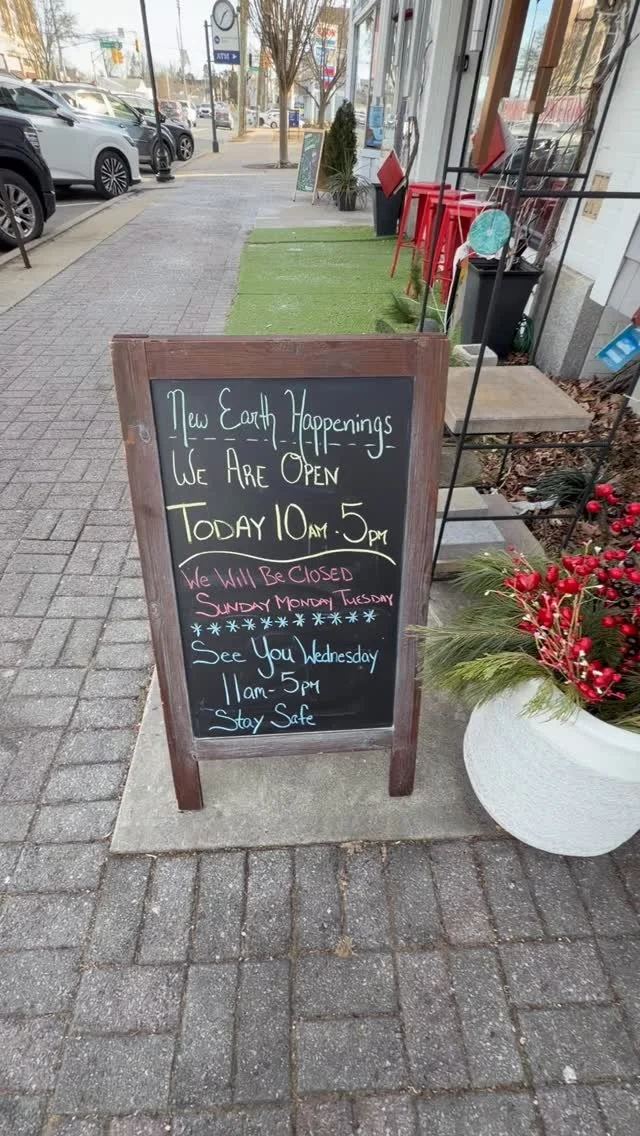 New Earth Happenings
We Are Open
Today 10am - 5pm
We Will Be Closed
Sunday Monday Tuesday
**********
See You Wednesday
11am - 5pm
Stay Safe
ATM